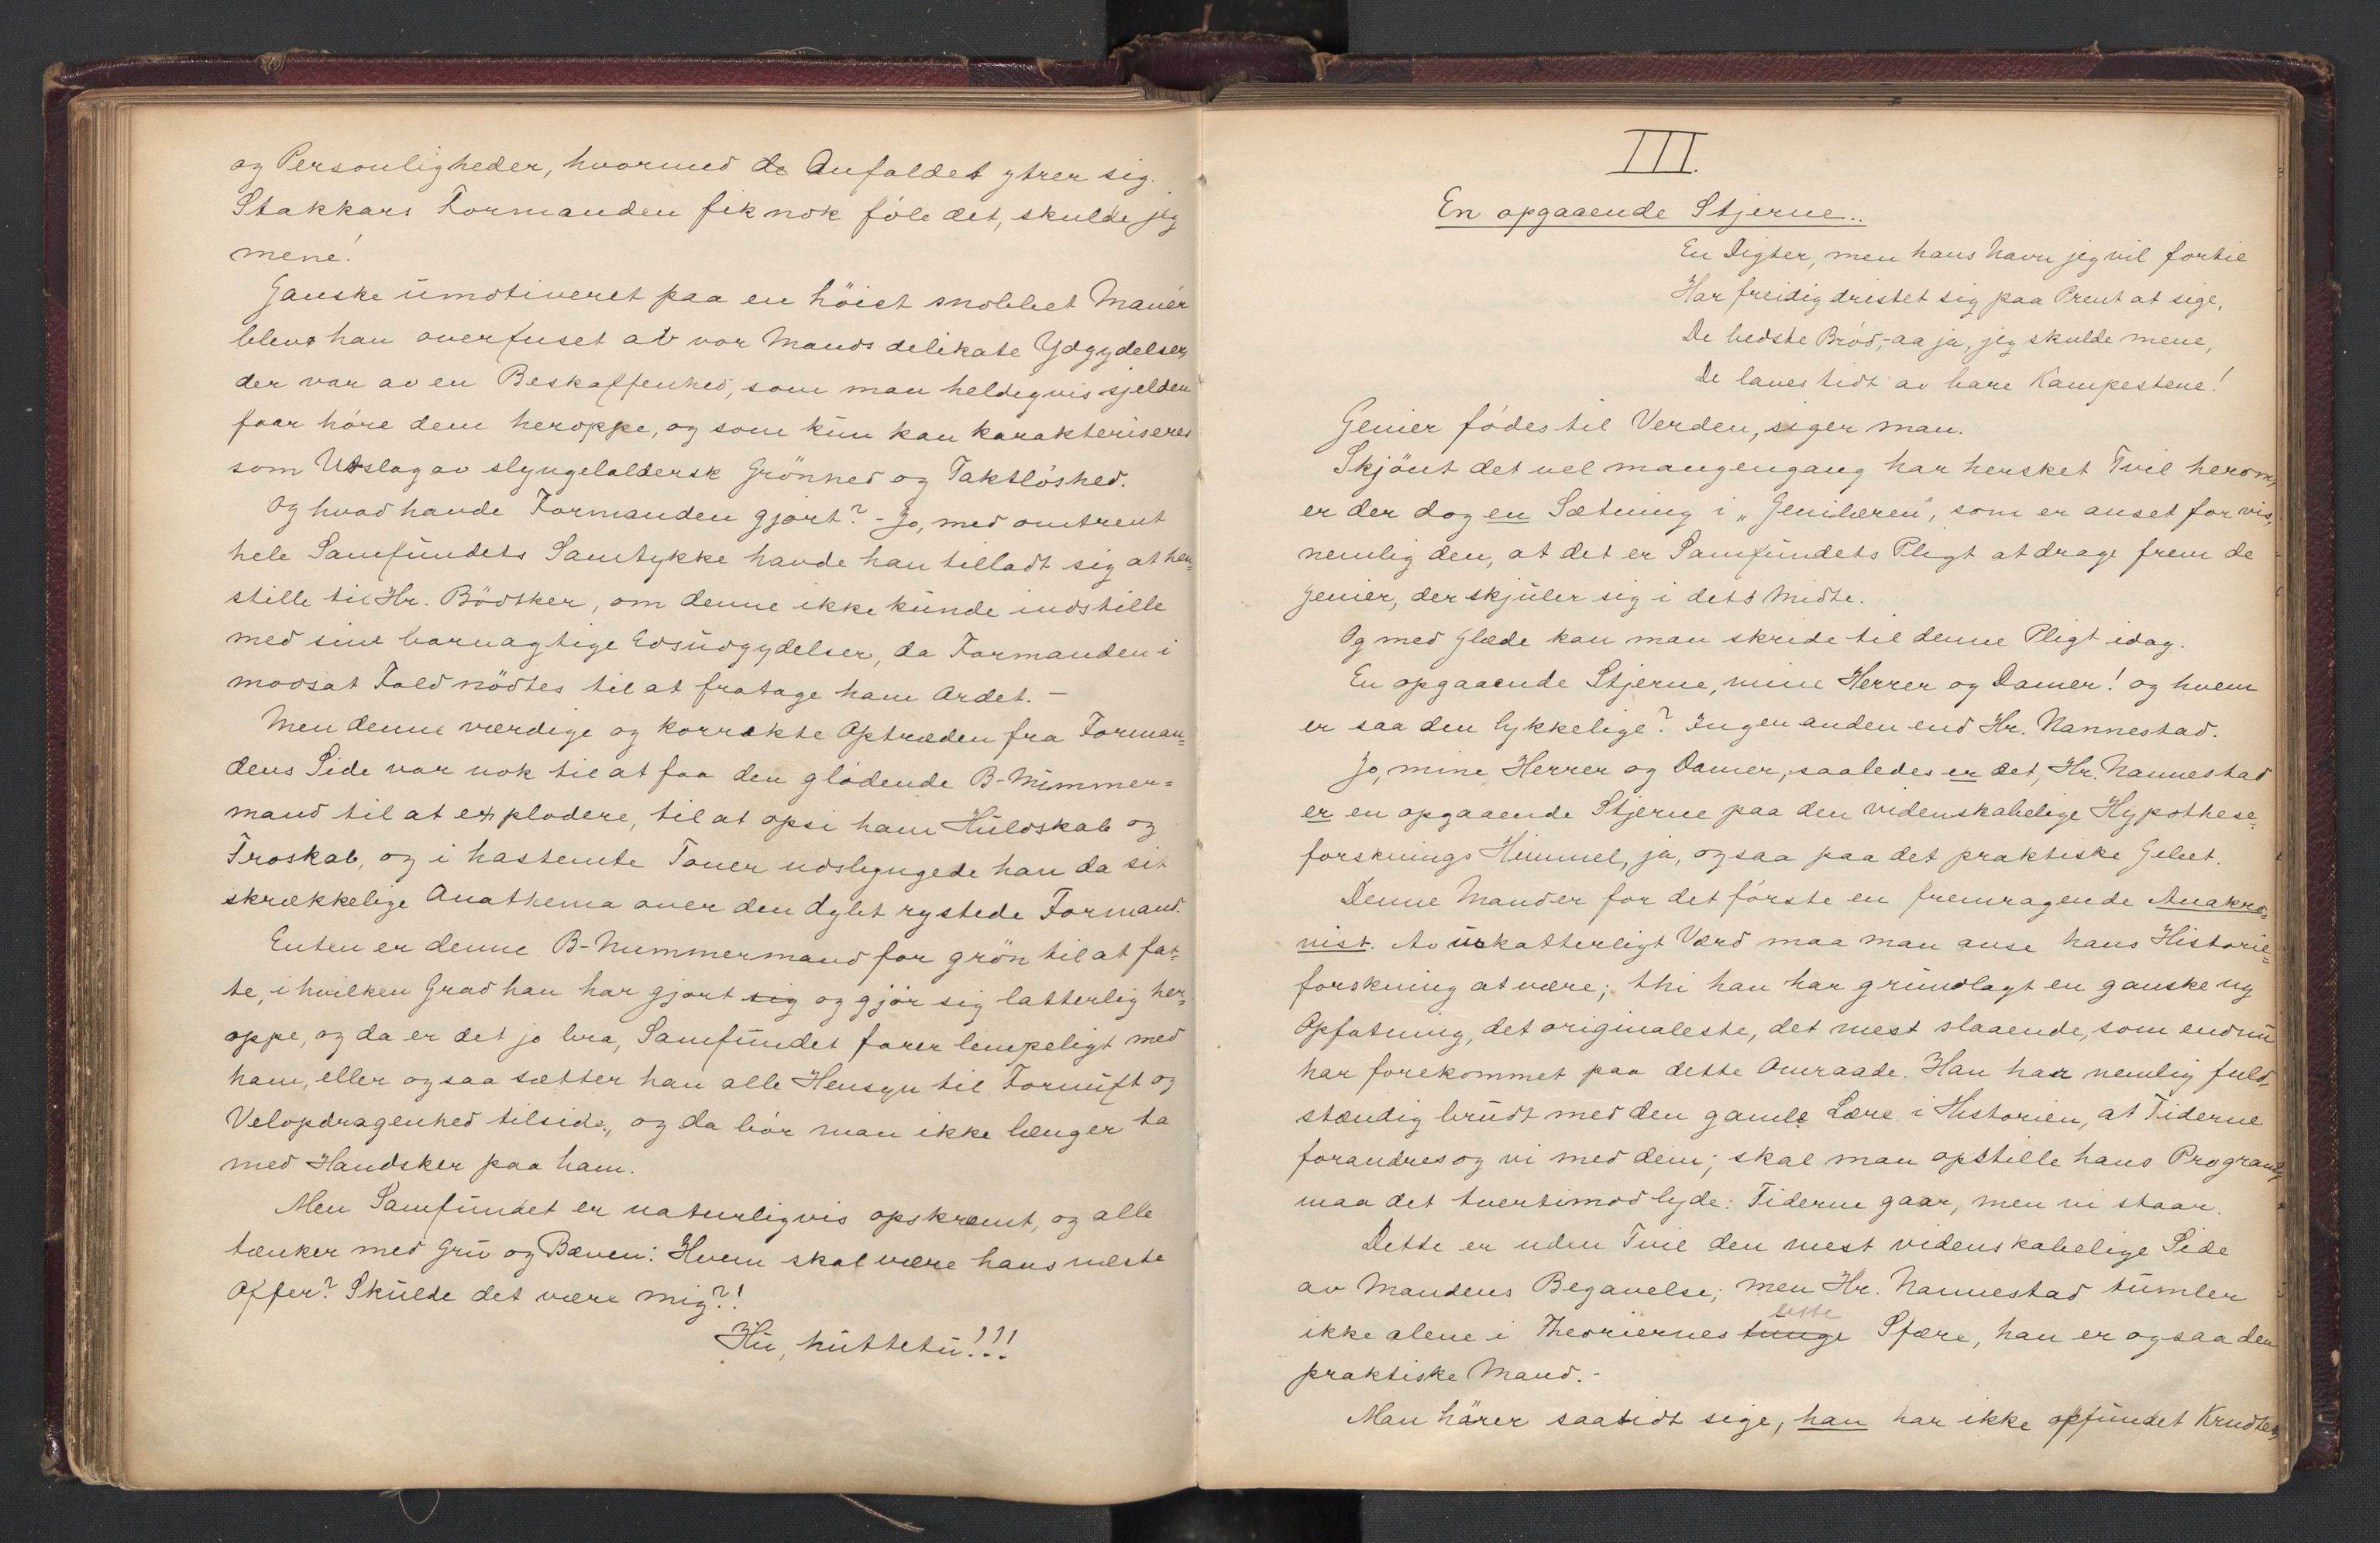 og Personligheder, hvormed de Anfaldet ytrer sig.
Stakkars Formanden fik nok føle det, skulde jeg
mene!
Ganske umotiveret paa en höist snobbet Manér
blev han overfuset av vor Mands delikate Ydgydelser,
der var av en Beskaffenhed, som man heldigvis sjelden
faar høre dem heroppe, og som kun kan karakteriseres
som Utslag av slyngelaldersk Grönhed og Taktløshed.
Og hvad havde Formanden gjort? - Jo, med omtrent
hele Samfundets Samtykke havde han tilladt sig at hen=
stille til Hr. Bödtker, om denne ikke kunde indstille
med sine barnagtige Edsudgydelser, da Formanden i
modsat Fald nödtes til at fratage ham Ordet. —
Men denne værdige og korrekte Optræden fra Forman=
dens Side var nok til at faa den glödende B-Nummer=
mand til at explodere, til at opsi ham Huldskab og
Troskab, og i hastemte Toner udslyngede han da sit
skrækkelige Anathema over den dybt rystede Formand.
Enten er denne B-Nummermand for grön til at fat=
te, i hvilken Grad han har gjort sig og gjör sig latterlig her=
oppe, og da er det jo bra, Samfundet farer lempeligt med
ham, eller ogsaa sætter han alle Hensyn til Fornuft og
Velopdragenhed tilside, og da bör man ikke længer ta
med Handsker paa ham.
Men Samfundet er naturligvis opskræmt, og alle
tænker med Gru og Bæven: Hvem skal være hans næste
Offer? Skulde det være mig?!
Hu, huttetu!!!
III.
En opgaaende Stjerne..
En Digter, men hans Navn jeg vil fortie
Har freidig dristet sig paa Prent at sige,
De bedste Bröd, - aa ja, jeg skulde mene,
De laves tidt av bare Kampestene!
Genier fødes til Verden, siger man.
Skjönt det vel mangengang har hersket Tvil herom,
er der dog en Sætning i "Genilæren", som er anset for vis,
nemlig den, at det er Samfundets Pligt at drage frem de
Genier, der skjuler sig i dets Midte.
Og med Glæde kan man skride til denne Pligt idag.
En opgaaende Stjerne, mine Herrer og Damer! og hvem
er saa den lykkelige? Ingen anden end Hr. Nannestad.
Jo, mine Herrer og Damer, saaledes er det, Hr. Nannestad
er en opgaaende Stjerne paa den videnskabelige Hypothese=
forsknings Himmel, ja, ogsaa paa det praktiske Gebet.
Denne Mand er for det første en fremragende Anakro=
nist. Av uskatterligt Værd maa man anse hans Historie=
forskning at være; thi han har grundlagt en ganske ny
Opfatning, det originaleste, det mest slaaende, som endnu
har forekommet paa dette Omraade. Han har nemlig fuld=
stændig brudt med den gamle Lære i Historien, at Tiderne
forandres og vi med dem; skal man opstille hans Program,
maa det tvertimod lyde: Tiderne gaar, men vi staar.
Dette er uden Tvil den mest videnskabelige Side
av Mandens Begavelse; men Hr. Nannestad tumler
lette
ikke alene i Theoriernes tunge Sfære, han er ogsaa den
praktiske Mand. -
Man hører saa tidt sige, han har ikke opfundet Krudtet,